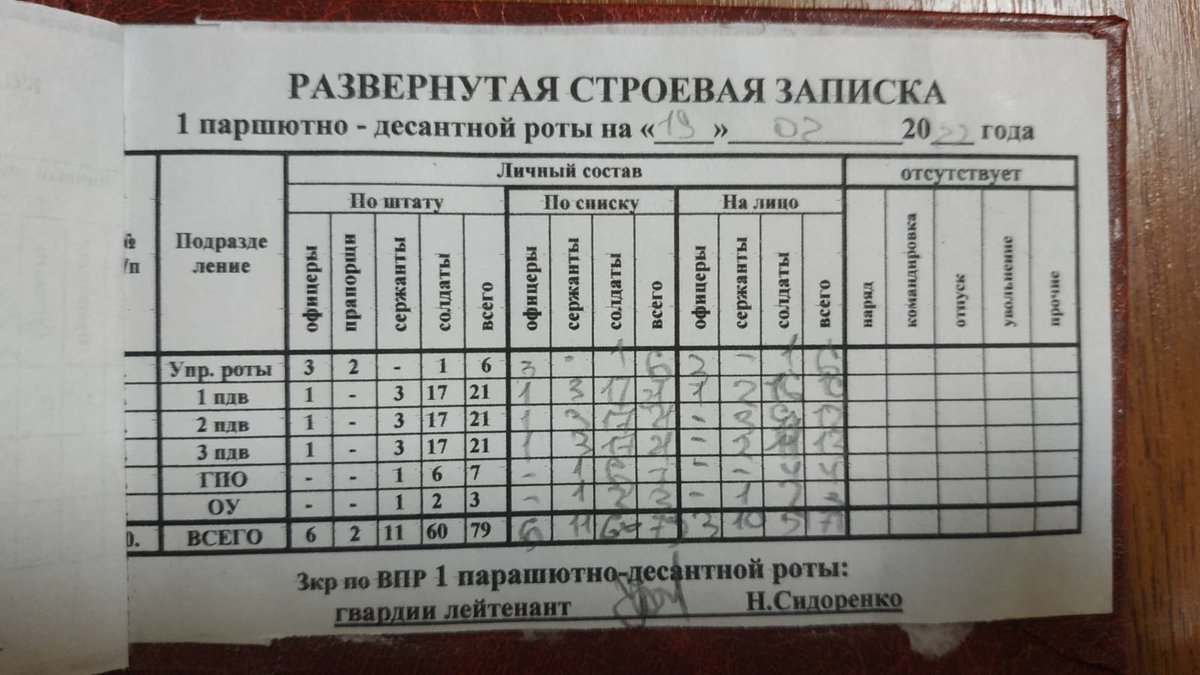 РАЗВЕРНУТАЯ СТРОЕВАЯ ЗАПИСКА
1 паршютно - десантной роты на «19» 02 2022 года
Личный состав отсутствует
По штату По списку На лицо
№ /п Подразде ление офицеры прапорщи сержанты солдаты всего офицеры сержанты солдаты всего офицеры сержанты солдаты всего наряд командировка отпуск увольнение прочие
Упр. роты 3 2 - 1 6 3 - 1 6 2 - 1
1 пдв 1 - 3 17 21 1 3 17 21 1 2
2 пдв 1 - 3 17 21 1 3 17 21 - 3
3 пдв 1 - 3 17 21 1 3 17 21 - 2
ГПО - - 1 6 7 - 1 6 7 - - 4 4
ОУ - - 1 2 3 - 1 2 3 - 1 2
0. ВСЕГО 6 2 11 60 79 6 11 3 10
Зкр по ВПР 1 парашютно-десантной роты:
гвардии лейтенант Н.Сидоренко